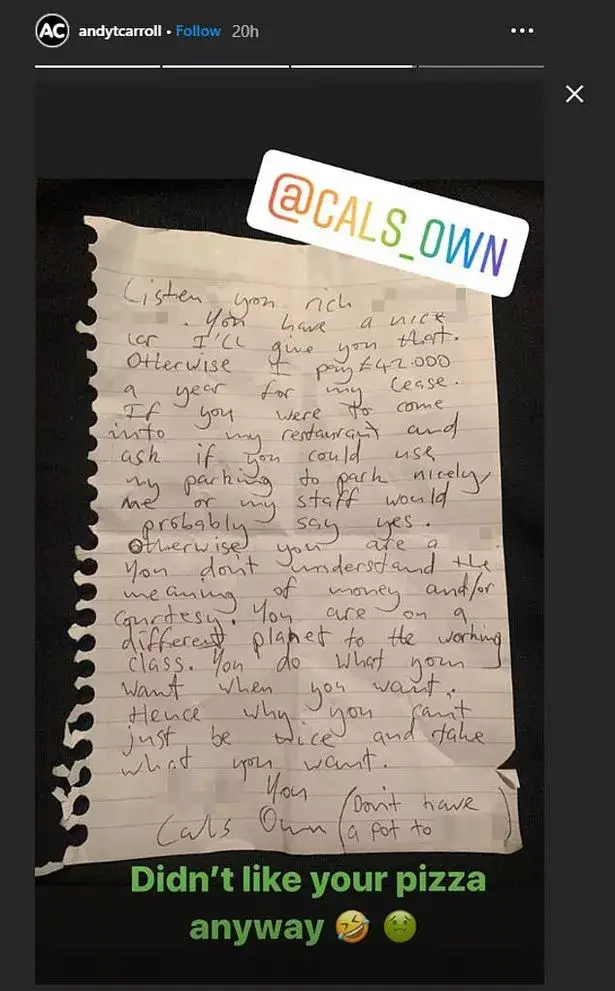 AC andytcarroll • Follow 20h
@CALS_OWN
Listen you rich
. You have a nice
car I'll give you that.
Otherwise I pay £42.000
a year for my lease.
If you were to come
into my restaurant and
ask if you could use
my parking to park nicely
me or my staff would
probably say yes.
Otherwise you are a
You don't understand the
meaning of money and/or
courtesy. You are on a
different planet to the working
class. You do what your
want when you want.
Hence why you can't
just be nice and take
what you want.
You
Cals Own (Don't have
a pot to )
Didn't like your pizza
anyway 🤣 🤢